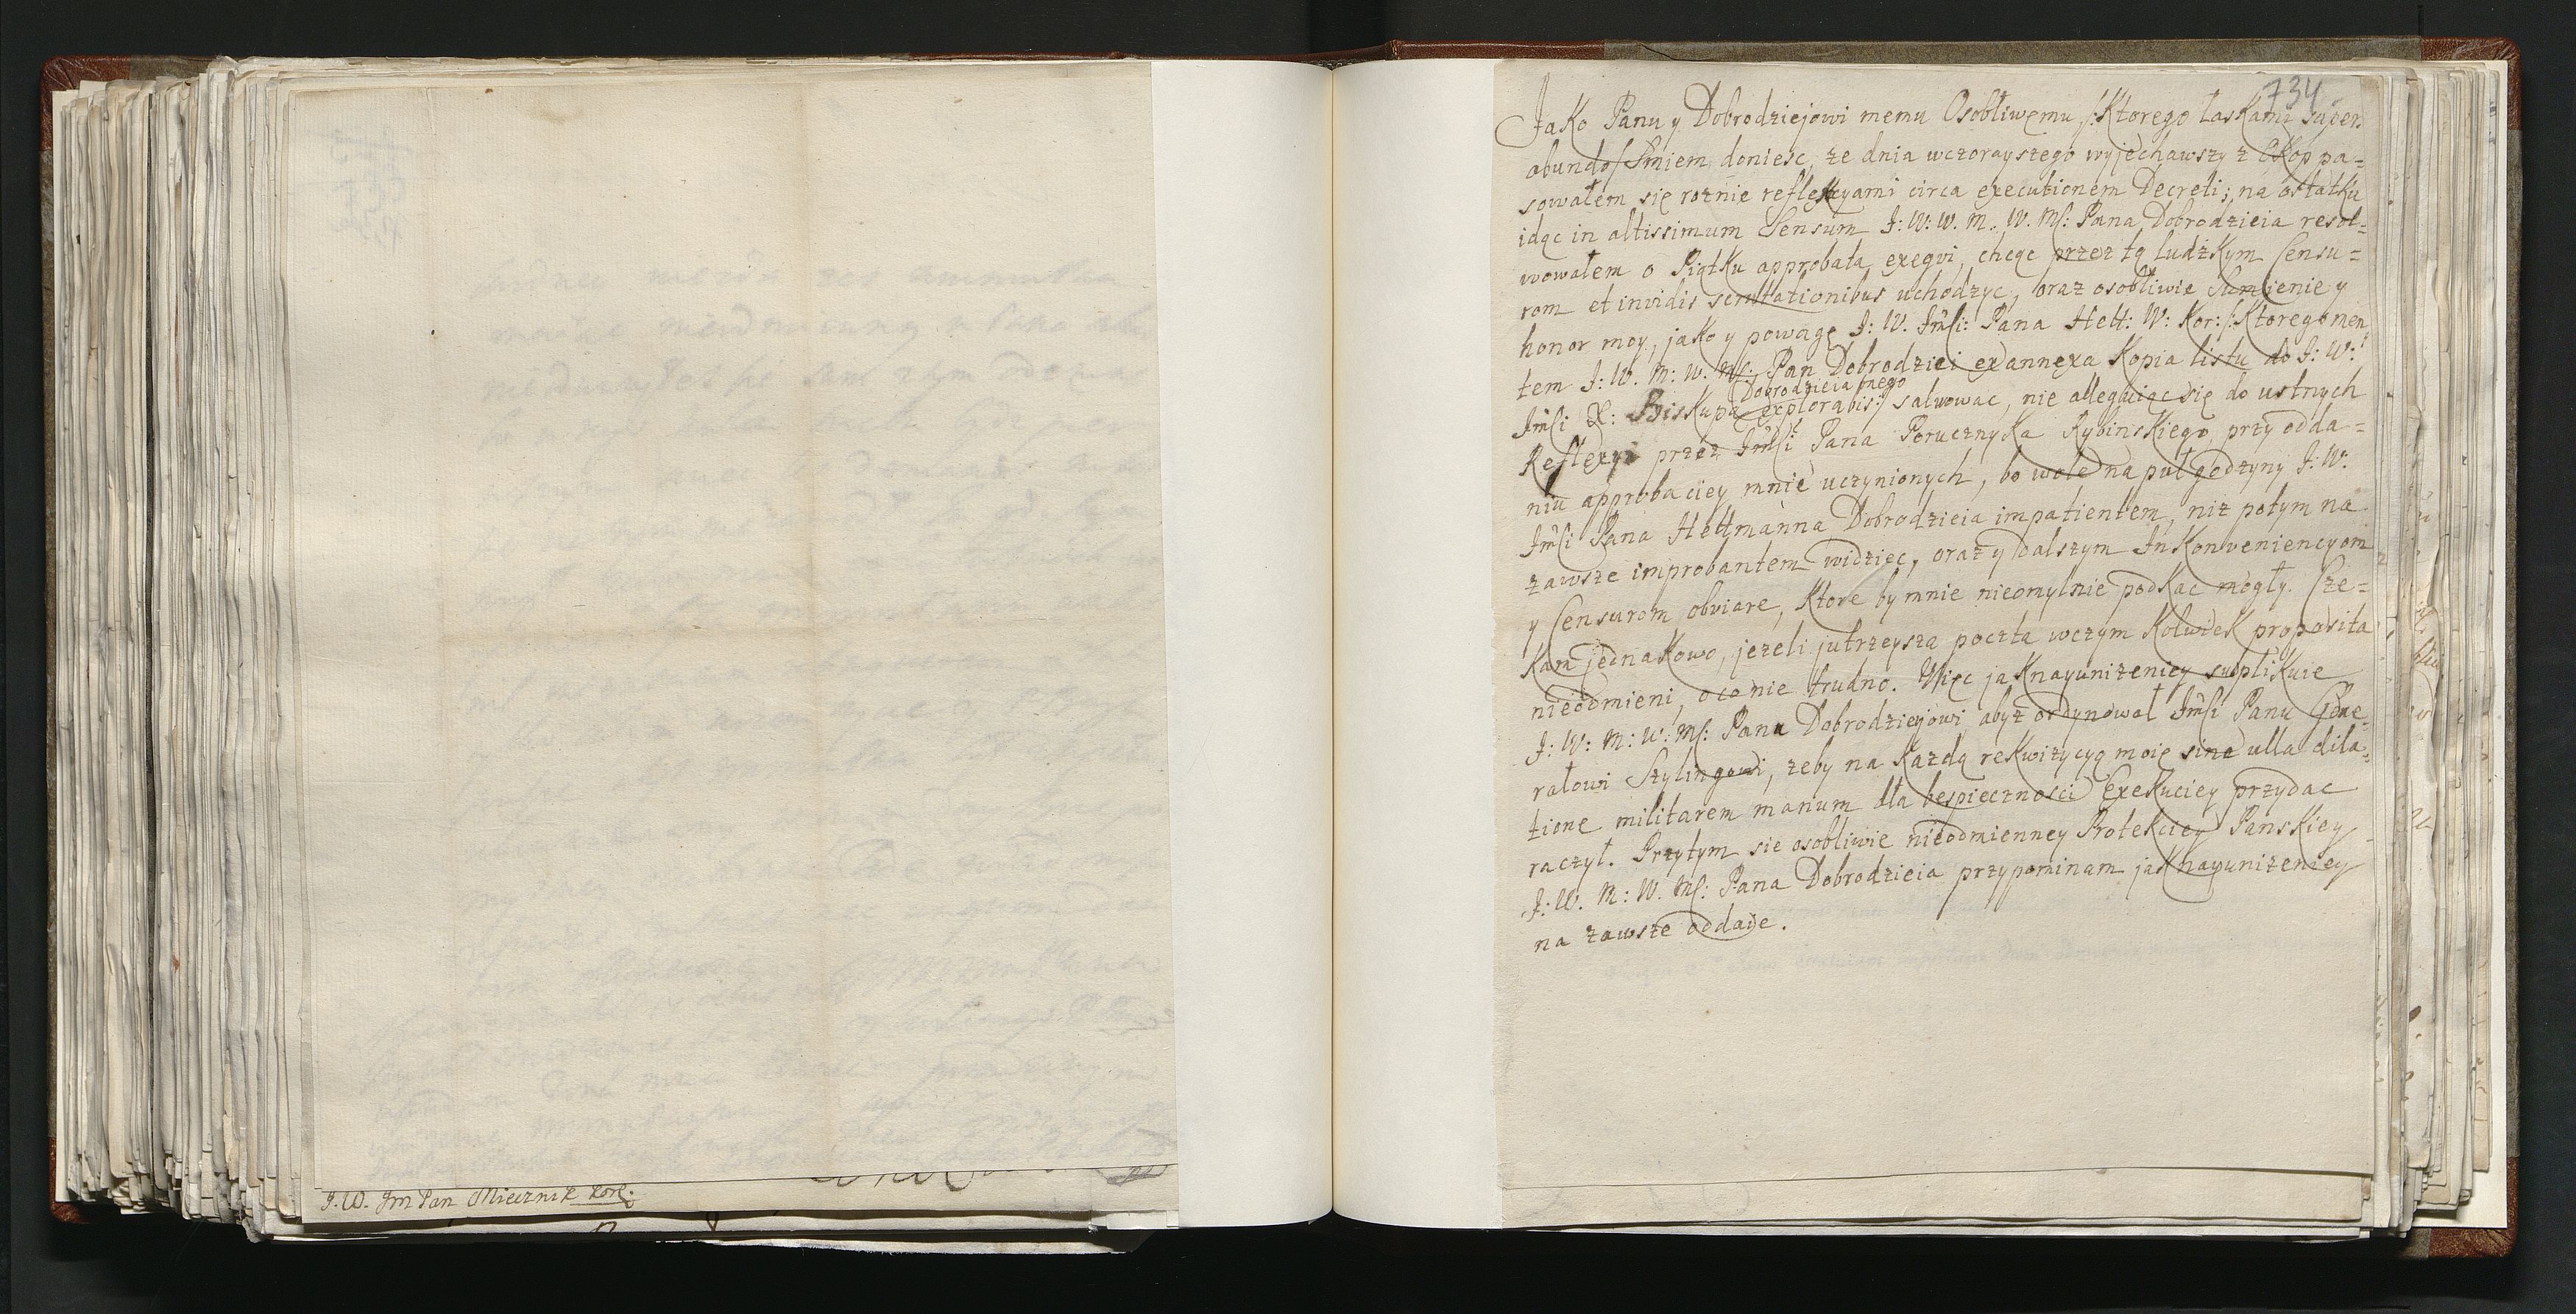 J. W. Jm Pan Miecznik kor:
734
Jako Panu y Dobrodziejowi memu Osobliwemu /:Ktorego łaskami super
abundo/ Smiem doniesc, ze dnia wczorayszego wyjechawszy z Ekop pa=
sowałem się roznie reflexyami circa executionem Decreti; na ostatku
idąc in altissimum Sensum J: W: W. M. W. Mś: Pana Dobrodzieia resol=
wowałem o Piątku approbata exeqvi, chcąc przez tą ludzkym Censu=
rom et invidis scrutationibus uchodzyc, oraz osobliwie Sumienie y
honor moy, jako y powagę J: W. Jmści: Pana Hett: W: Kor: /:Ktorego men
tem J: W. M: W. Mś: Pan Dobrodziei ex annexa Kopia listu do J: W:
Dobrodzieia mego
Jmści X: Biskupa explorabis:/ salwowac, nie alleguiąc się do ustnych
Reflexyi przez Jmści Pana Porucznyka Rybinskiego, przy odda=
niu approbaciey mnie uczynionych, bo wole na puł godzyny J: W:
Jmści Pana Hettmanna Dobrodzieia impatientem, niz potym na
zawsze improbantem widziec, oraz y dalszym Inkonveniencyom
y Censurom obviare, Ktore by mnie nieomylnie podkac mogły. Cze=
kam jednakowo, jezeli jutrzeysza poczta wczym kolwiek proposita
nieodmieni, oco nie trudno. Więc jaknayunizeniey supplikuie
J: W: M: W: Mś: Pana Dobrodziejowi abyż ordynował Jmści Panu Gene=
rałowi Szylingowi, zeby na kazdą rekwizycyą moię sine ulla dila=
tione militarem manum dla bespiecznosci Exekuciey przydac
raczył. Przytym sie osobliwie nieodmienney Protekciey Panskiey
J: W. M: W. Mś: Pana Dobrodzieia przypominam jaknayunizeniey
na zawsze oddaie.